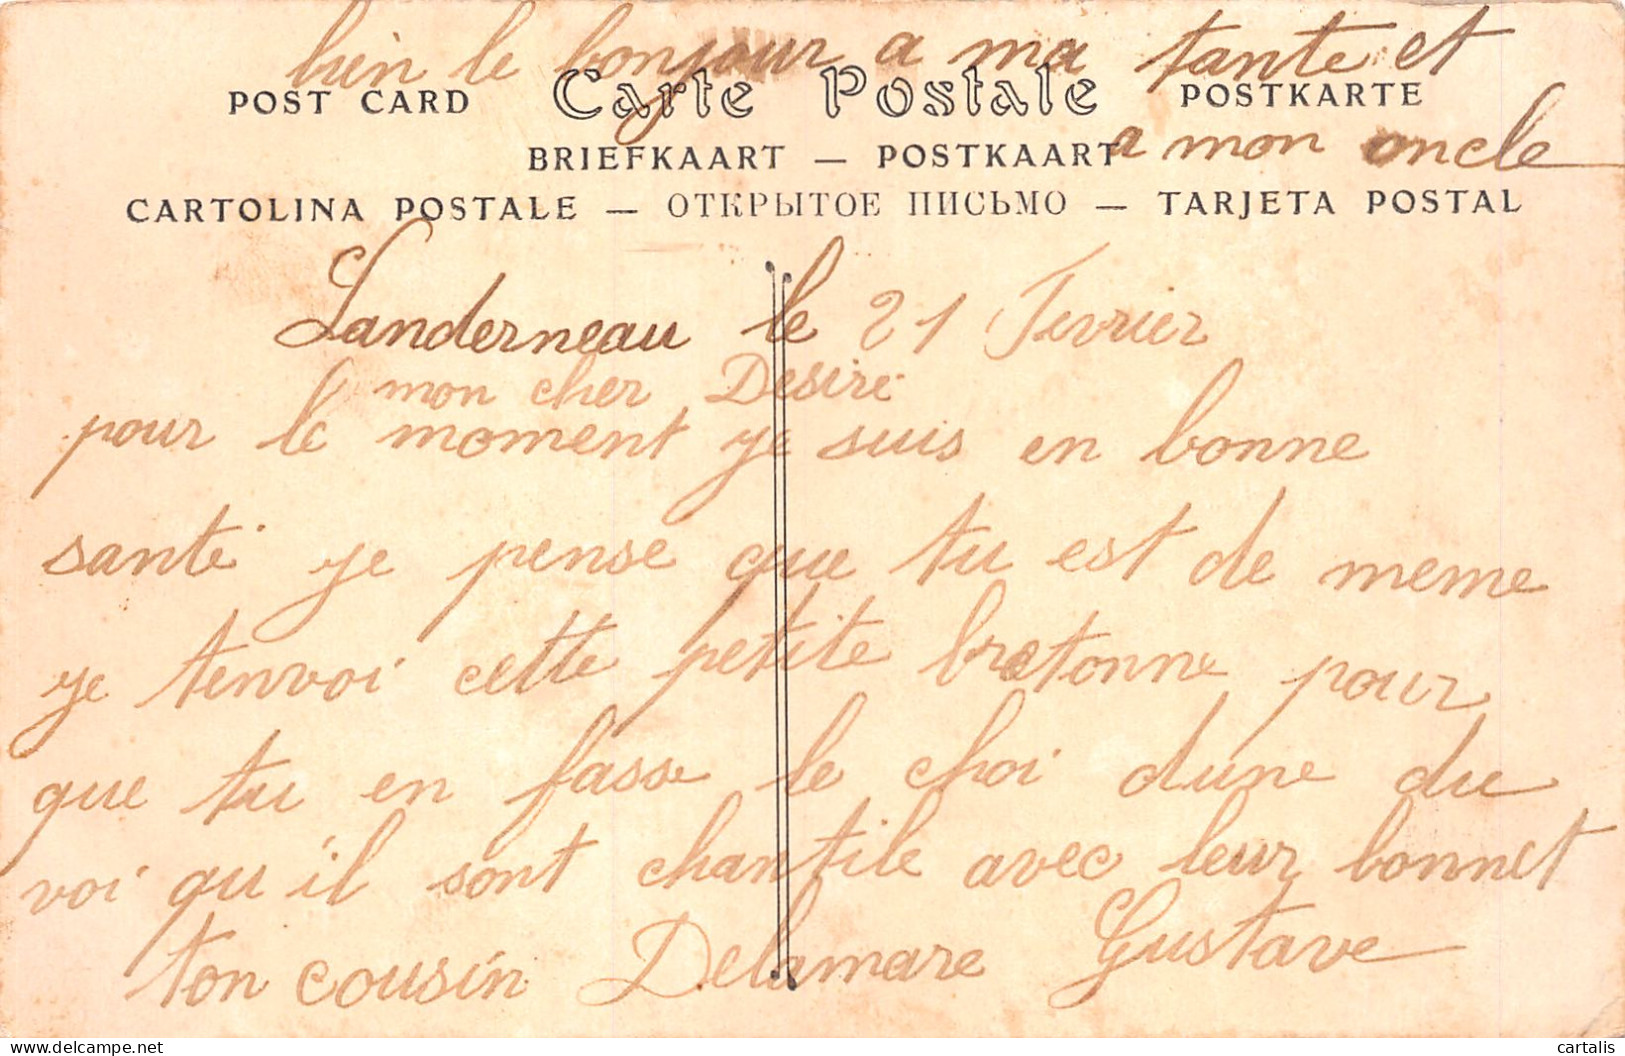 bien le bonjour a ma tante et
POST CARD Carte Postale POSTKARTE
a mon oncle
BRIEFKAART — POSTKAART
CARTOLINA POSTALE — ОТКРЫТОЕ ПИСЬМО — TARJETA POSTAL
Landerneau le 21 Fevrier
mon cher Desiré
pour le moment je suis en bonne
santé je pense que tu est de meme
je tenvoi cette petite bretonne pour
que tu en fasse le choi dune du
voi qu'il sont chantile avec leur bonnet
ton cousin Delamare Gustave
cartalis